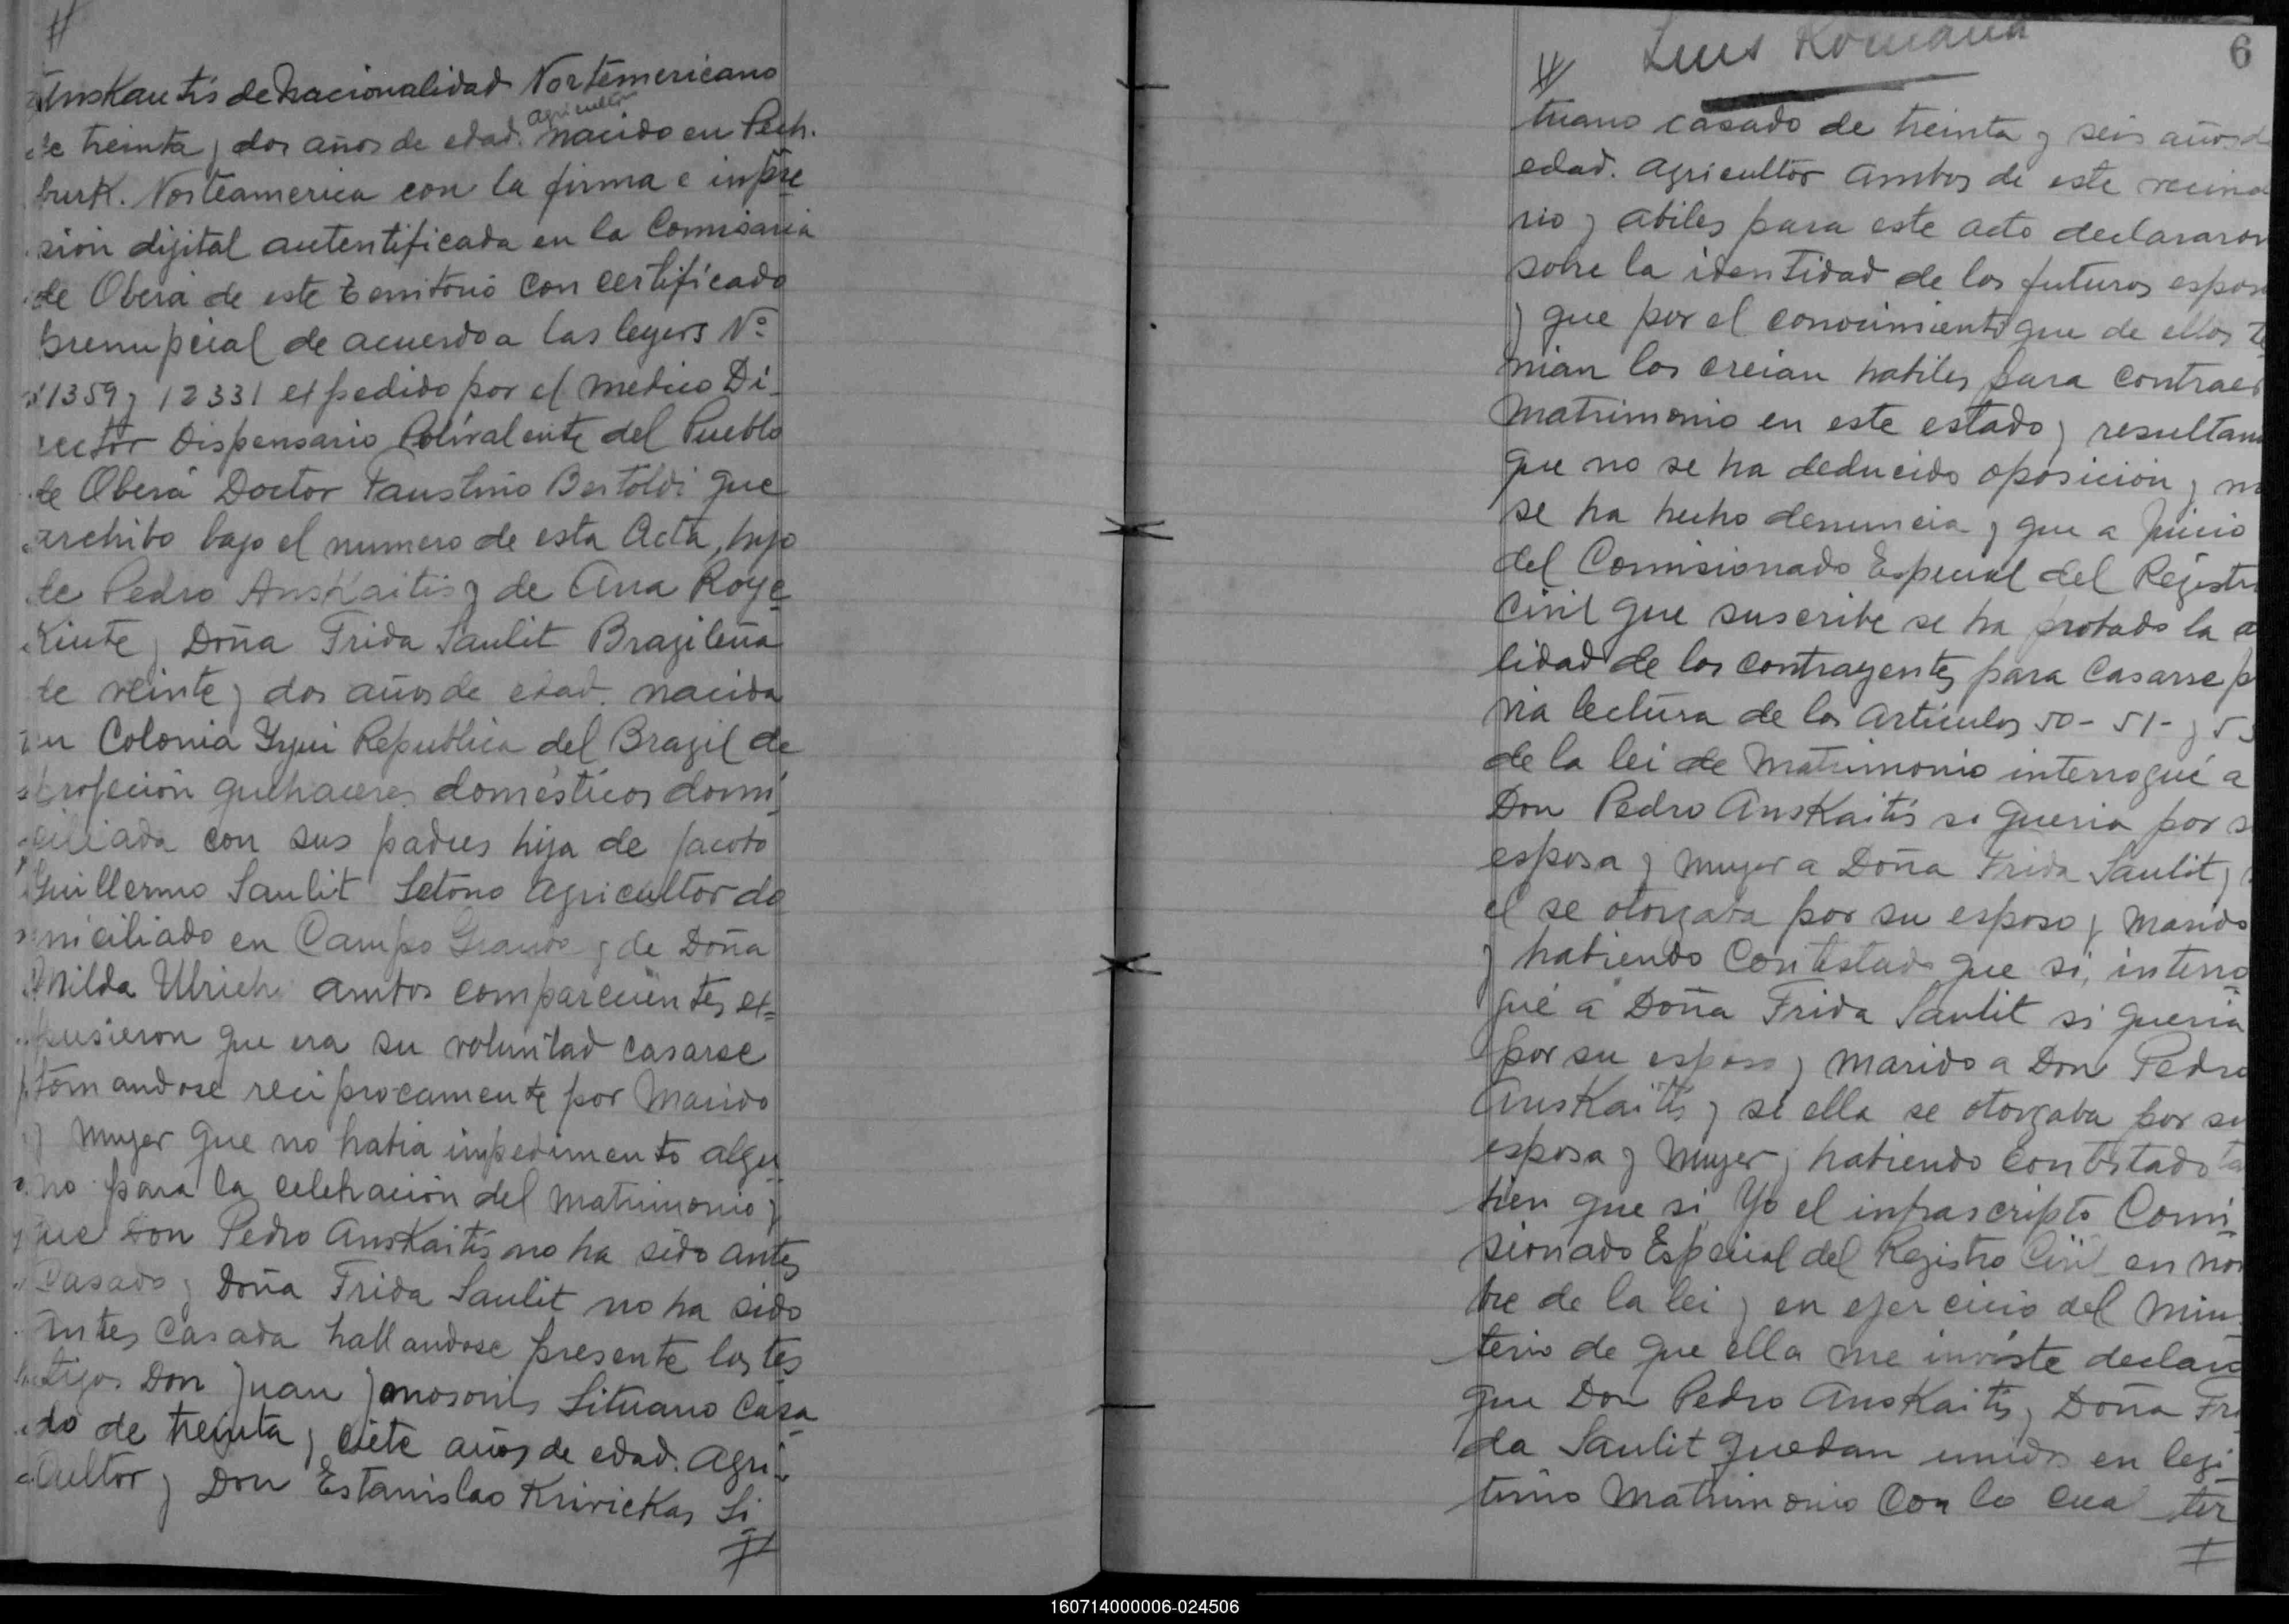 #
Anskautis de nacionalidad Nortemericano
agricultor
de treinta y dos años de edad. nacido en Pech.
burk. Norteamerica con la firma e inpre
sion digital autentificada en la Comisaria
de Oberá de este territorio con certificado
prenupcial de acuerdo a las leyers Nº
11359 y 12331 expedido por el medico Di-
rector Dispensario Polivalente del Pueblo
de Oberá Doctor Faustino Bertoldi que
archibo bajo el numero de esta Acta, hijo
de Pedro Anskaitis y de Ana Roye
Kinte y Doña Frida Saulit Brazileña
de veinte y dos años de edad. nacida
en Colonia Yjui Republica del Brazil de
profecion quehaceres domésticos domi
ciliada con sus padres hija de Jacobo
Guillermo Saulit Letono agricultor do
miciliado en Campo Grande y de Doña
Milda Ulrich ambos comparecientes ex=
pusieron que era su voluntad casarse
tomandose reciprocamente por Marido
y Mujer que no habia impedimento algu
no para la celebración del Matrimonio y
que Don Pedro Anskaitis no ha sido antes
Casado y Doña Frida Saulit no ha sido
antes Casada hallandose presente los tes
tigos Don Juan Jonosonis Lituano Casa
do de treinta y ciete años de edad. Agri-
cultor y Don Estanislao Krivickas Li
#
Luis Romana
6
#
tuano casado de treinta y seis años d
edad. agricultor ambos de este vecinda
rio y abiles para este acto declararon
sobre la identidad de los futuros espos
y que por el conocimiento que de ellos te
nian los creian habiles para contraer
Matrimonio en este estado y resultan
que no se ha deducido oposicion y ni
se ha hecho denuncia y que a Juicio
del Comisionado Especial del Registr
Civil que suscribe se ha probado la a
lidad de los contrayentes para Casarse p
via lectura de los Articulos 50 - 51 - y 53
de la lei de Matrimonio interrogué a
Don Pedro Anskaitis si queria por s
esposa y Mujer a Doña Frida Saulit y
el se otorgaba por su esposo y Marido
y habiendo Contestado que si, interro
gué a Doña Frida Saulit si queria
por su esposo y Marido a Don Pedro
Anskaitis y si ella se otorgaba por su
esposa y Mujer y habiendo Contestado ta
bien que si Yo el infrascripto Comi
sionado Especial del Registro Civil en nom
bre de la lei y en ejercicio del Minis
terio de que ella me inviste declaro
que Don Pedro Anskaitis y Doña Fri
da Saulit quedan unidos en legi
timo Matrimonio Con lo cual ter
#
160714000006-024506